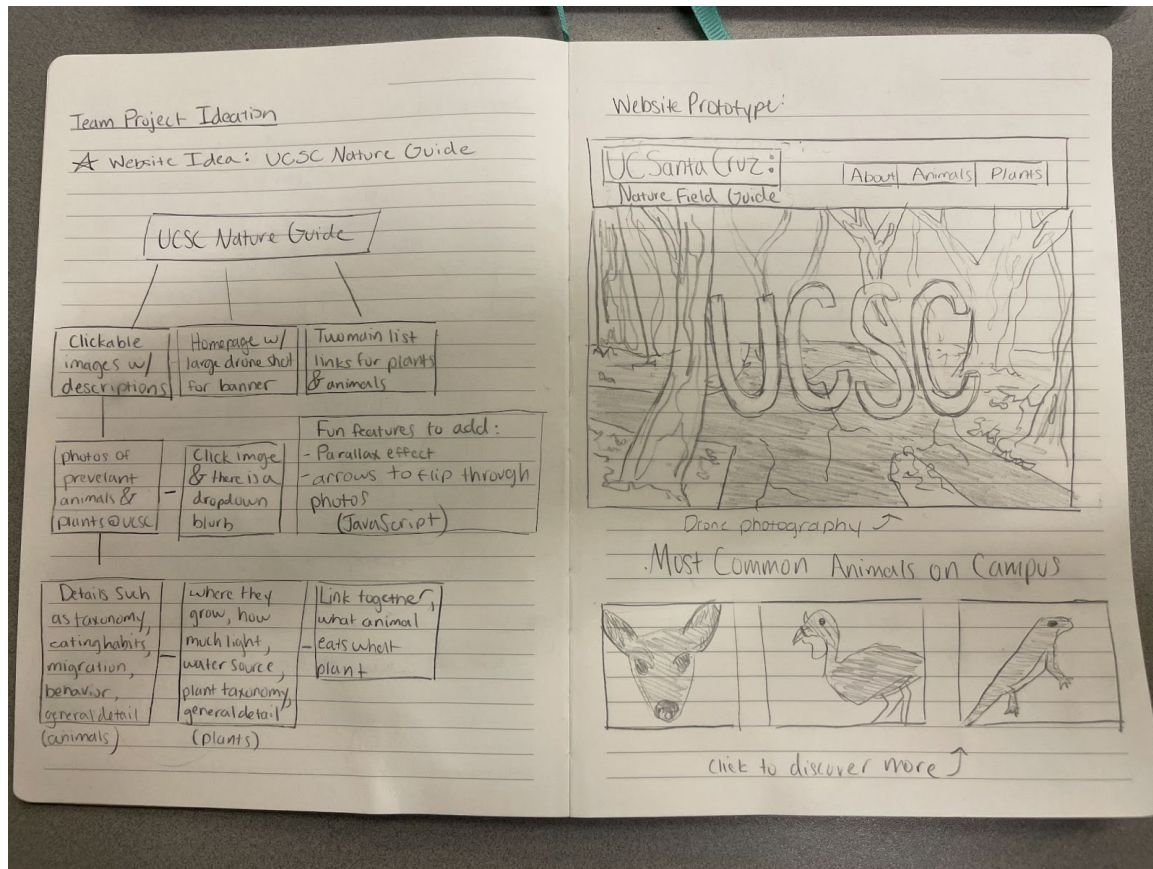 Team Project Ideation
☆ Website Idea: UCSC Nature Guide
UCSC Nature Guide
Clickable
images w/
descriptions
Homepage w/
large drone shot
for banner
Two main list
links for plants
& animals
photos of
prevelant
animals &
plants @ UCSC
Click image
& there is a
dropdown
blurb
Fun features to add:
- Parallax effect
- arrows to flip through
photos
(JavaScript)
Details such
as taxonomy,
eating habits,
migration,
behavior,
general detail
(animals)
where they
grow, how
much light,
water source,
plant taxonomy,
general detail
(plants)
Link together,
what animal
eats what
plant
Website Prototype:
UC Santa Cruz:
Nature Field Guide
About Animals Plants
UCSC
Drone photography
Most Common Animals on Campus
Click to discover more